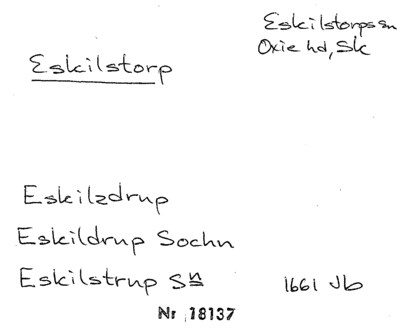 Eskilstorpssn
Oxie hd, Sk
Eskilstorp
Eskilzdrup
Eskildrup Sochn
Eskilstrup Sn 1661 Jb
Nr 18137